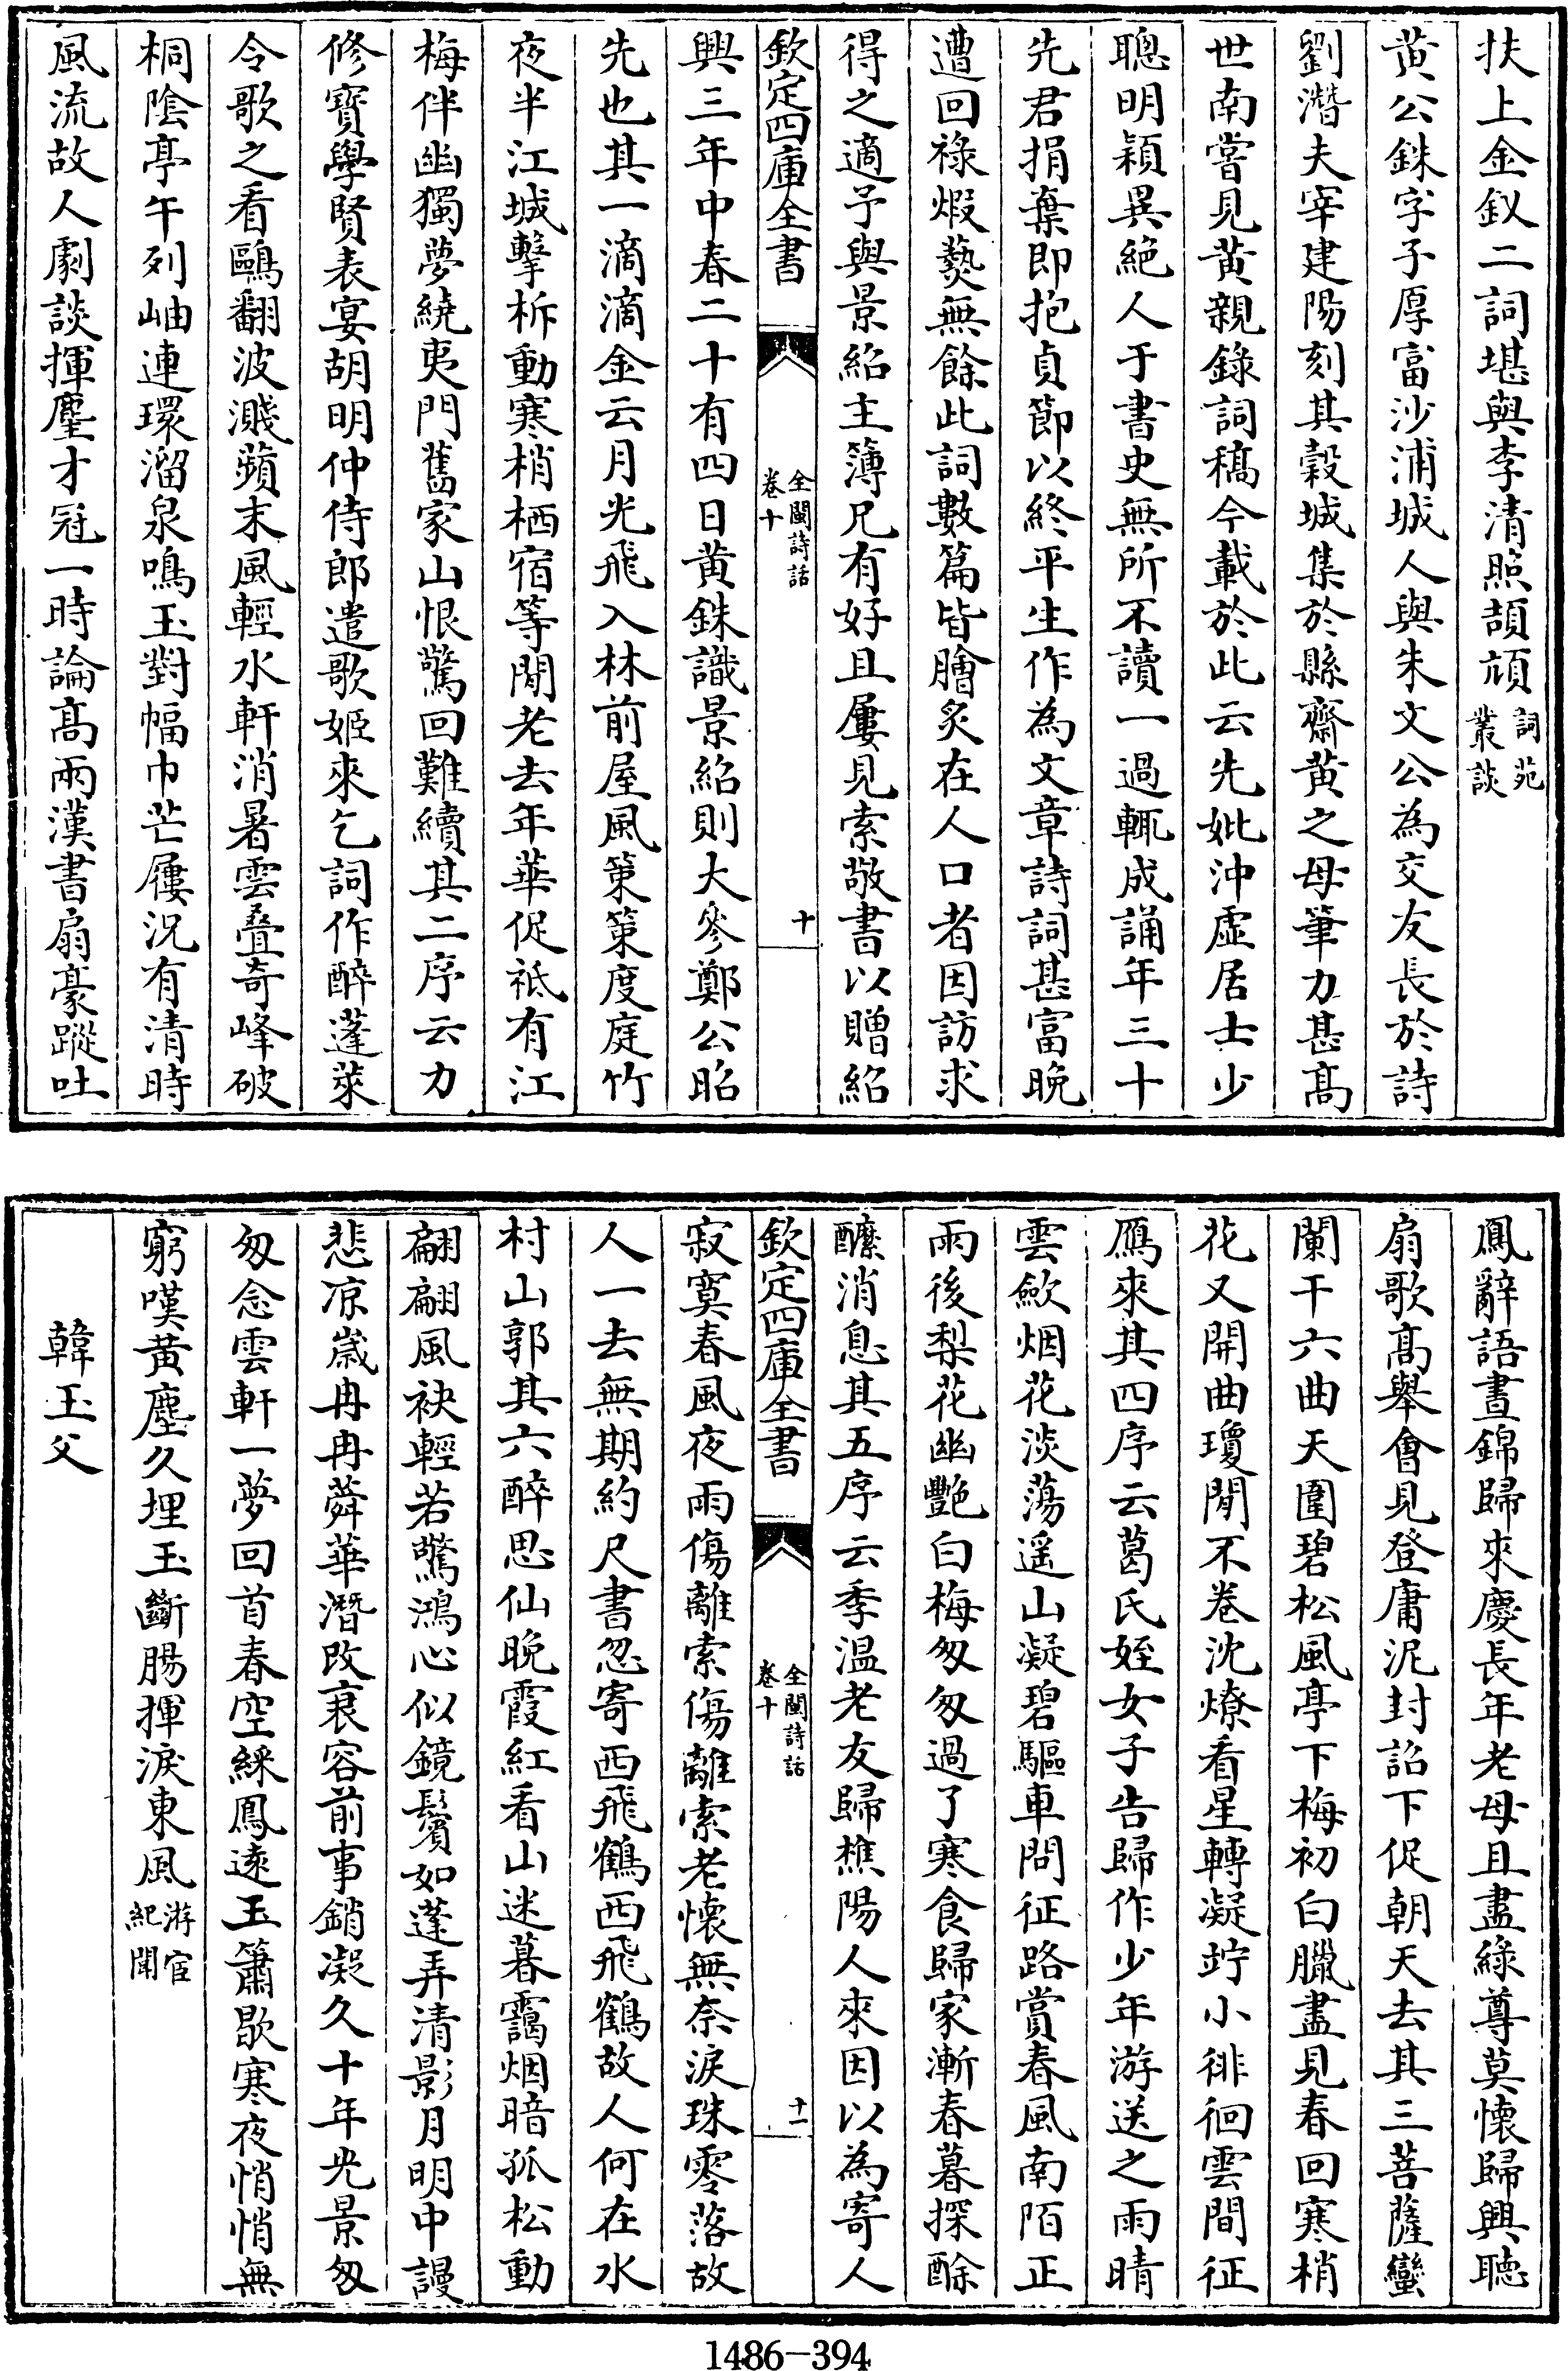 扶上金釵二詞堪與李清照頡頏詞苑叢談
黄公銖字子厚富沙浦城人與朱文公為交友長於詩
劉潛夫宰建陽刻其穀城集於縣齋黄之母筆力甚髙
世南嘗見黄親錄詞稿今載於此云先妣沖虚居士少
聰明穎異絶人于書史無所不讀一過輒成誦年三十
先君捐棄即抱貞節以終平生作為文章詩詞甚富晚
遭回祿煆爇無餘此詞數篇皆膾炙在人口者因訪求
得之適予與景紹主簿兄有好且屢見索敬書以贈紹
欽定四庫全書
全閩詩話
卷十
十
興三年中春二十有四日黄銖識景紹則大參鄭公昭
先也其一滴滴金云月光飛入林前屋風策策度庭竹
夜半江城擊柝動寒梢栖宿等閒老去年華促祗有江
梅伴幽獨夢繞夷門舊家山恨驚回難續其二序云力
修寳學賢表宴胡明仲侍郎遣歌姬來乞詞作醉蓬萊
令歌之看鷗翻波濺蘋末風輕水軒消暑雲叠奇峰破
桐陰亭午列岫連環溜泉鳴玉對幅巾芒屨況有清時
風流故人劇談揮麈才冠一時論髙兩漢書扇豪蹤吐
鳳辭語晝錦歸來慶長年老母且盡綠尊莫懐歸興聽
扇歌髙舉會見登庸泥封詔下促朝天去其三菩薩蠻
闌干六曲天圍碧松風亭下梅初白臘盡見春回寒梢
花又開曲瓊閒不巻沈燎看星轉凝竚小徘徊雲間征
鴈來其四序云葛氏姪女子告歸作少年游送之雨晴
雲歛烟花淡蕩遥山凝碧驅車問征路賞春風南陌正
雨後梨花幽艶白梅匆匆過了寒食歸家漸春暮探酴
醾消息其五序云季温老友歸樵陽人來因以為寄人
欽定四庫全書
全閩詩話
卷十
十一
寂寞春風夜雨傷離索傷離索老懐無奈淚珠零落故
人一去無期約尺書忽寄西飛鶴西飛鶴故人何在水
村山郭其六醉思仙晚霞紅看山迷暮靄烟暗孤松動
翩翩風袂輕若驚鴻心似鏡鬢如蓬弄清影月明中謾
悲凉嵗冉冉蕣華潛改衰容前事銷凝久十年光景匆
匆念雲軒一夢回首春空綵鳳逺玉簫歇寒夜悄悄無
窮嘆黄塵久埋玉斷腸揮淚東風游宦紀聞
韓玉父
1486-394